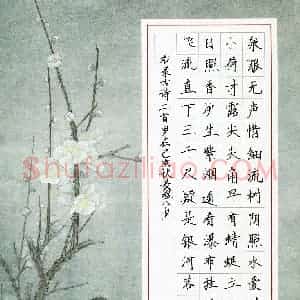 泉眼无声惜细流树阴照水爱
小荷才露尖尖角早有蜻蜓立
日照香炉生紫烟遥看瀑布挂
飞流直下三千尺疑是银河落
录古诗二首甲辰
Shufaziliao.com